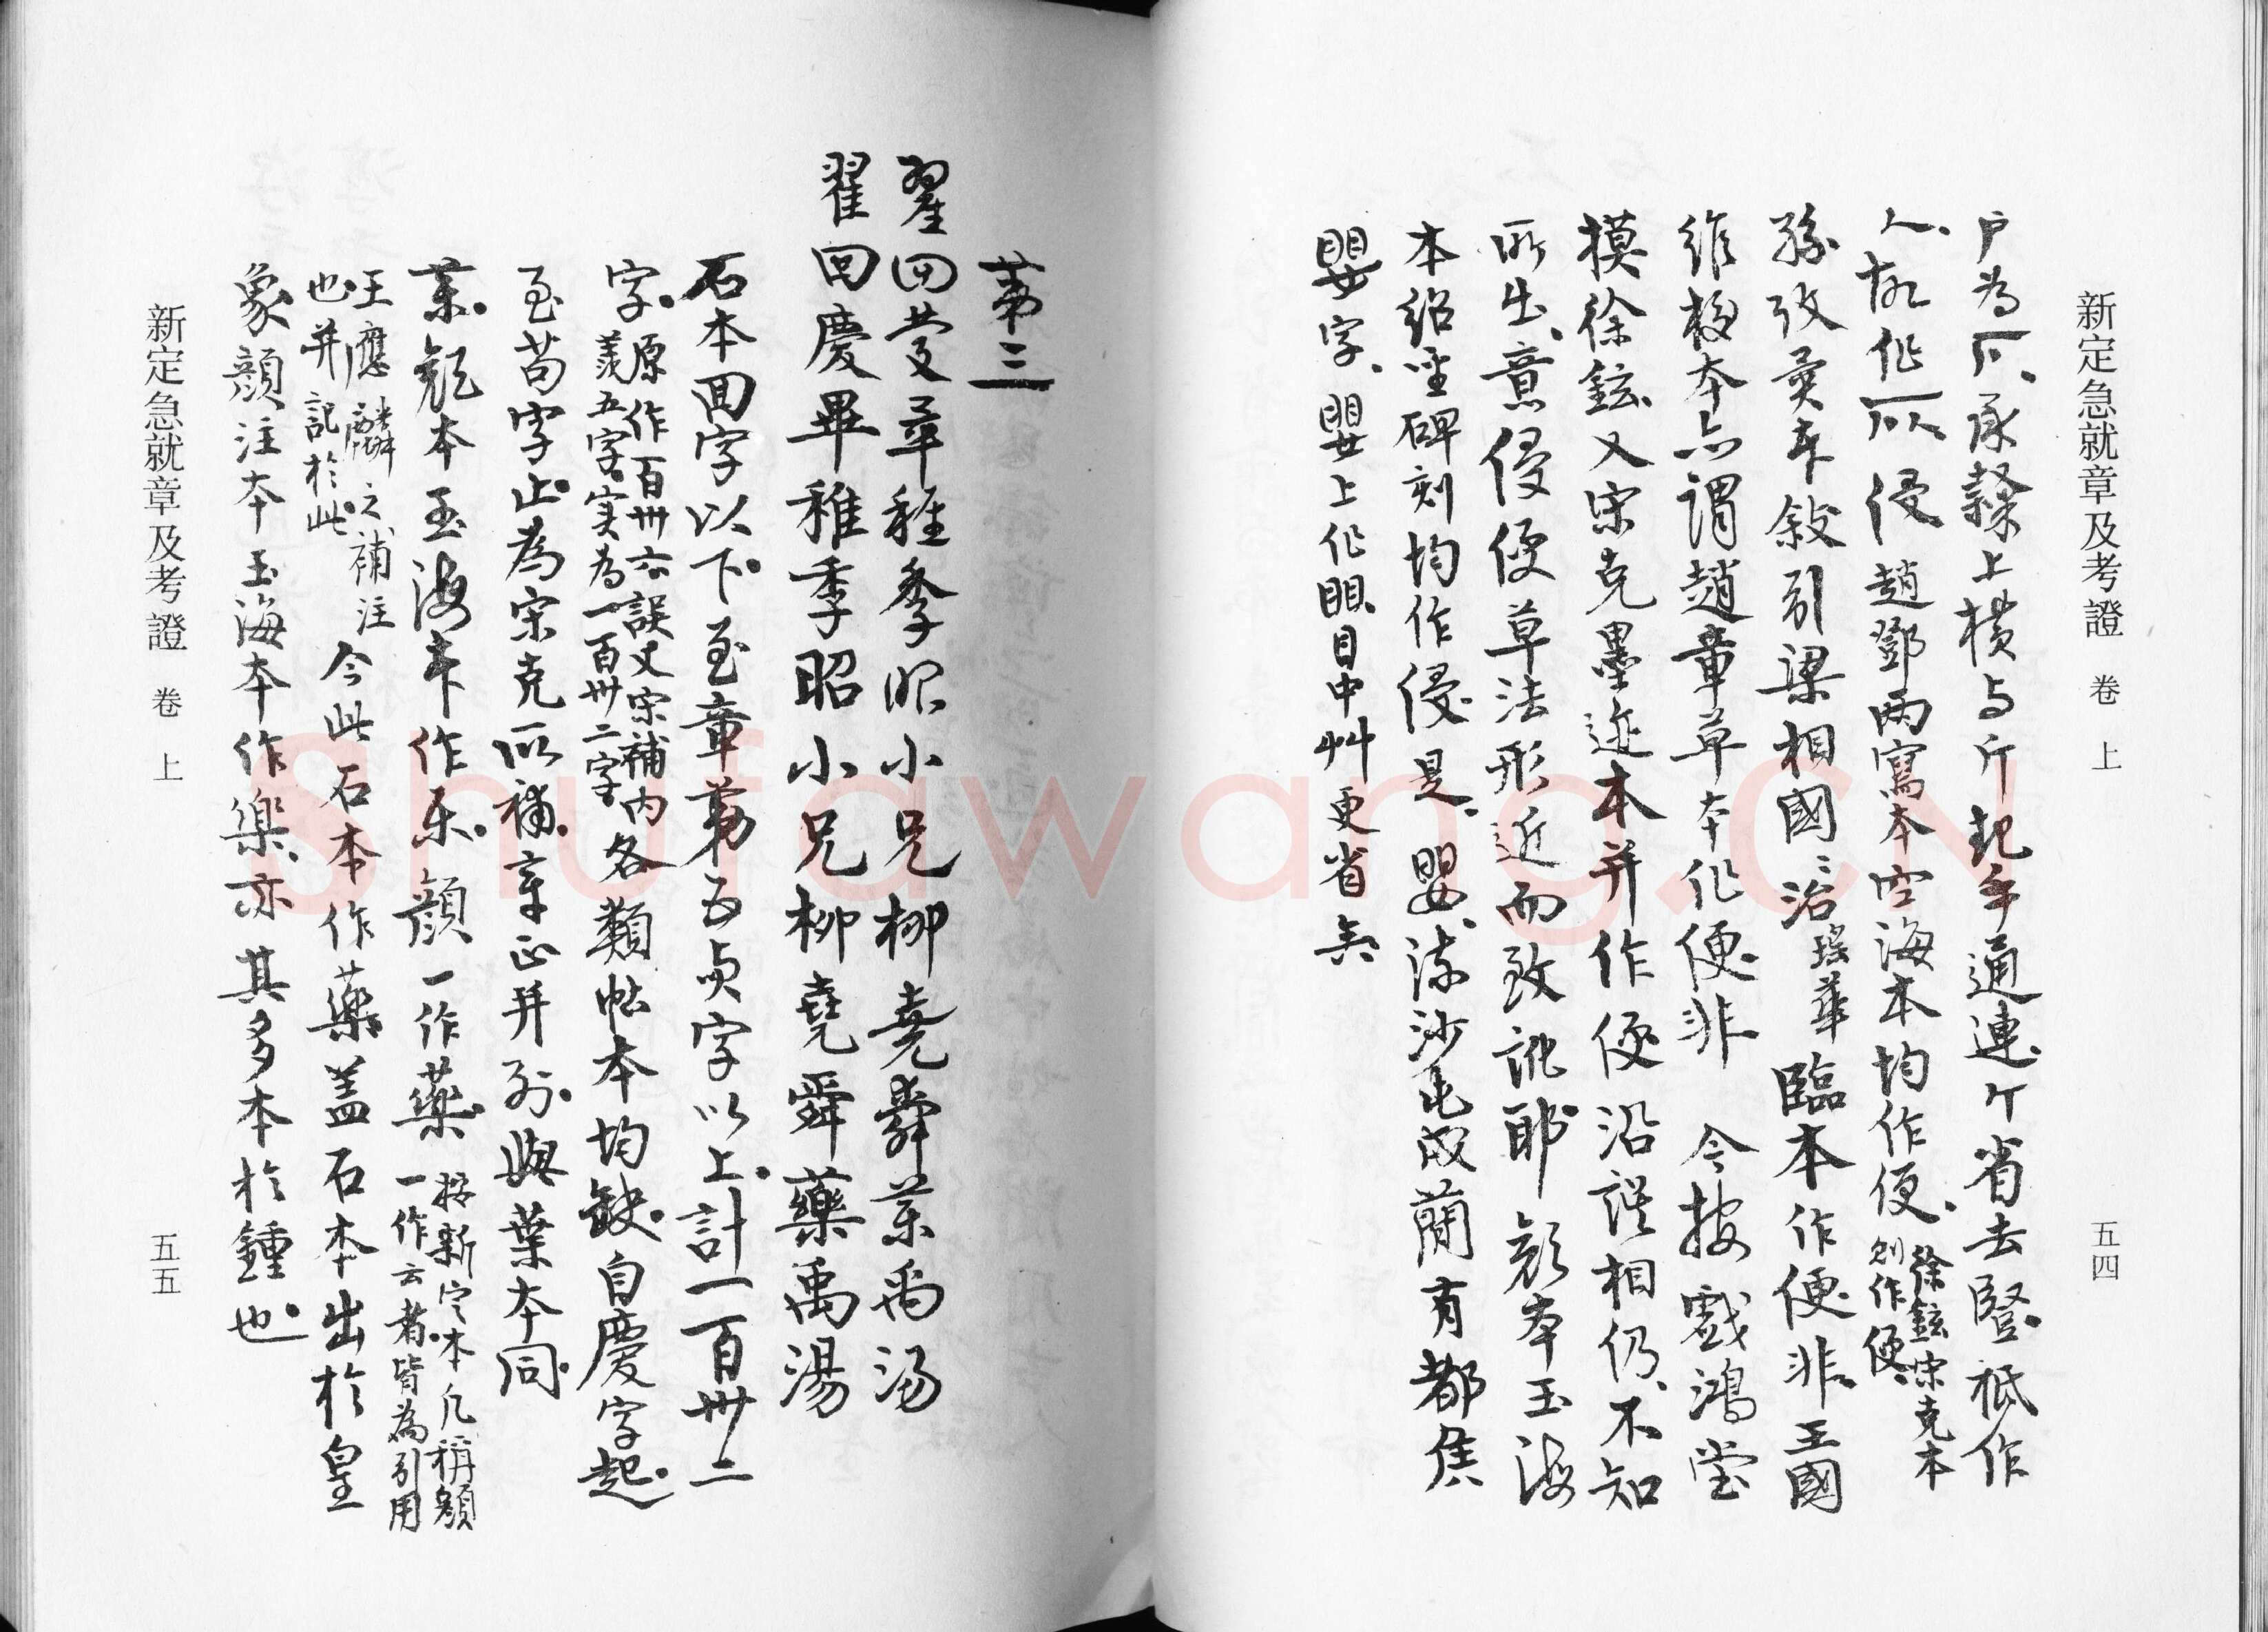 新定急就章及考證 卷上 五四
戶為 承隸上橫与斤起年通連 省去竪 祇作
人 作 侵 趙鄧兩寫本空海本均作便 徐鉉宋克本
則作便
孫攷異本敍引梁相國治瑤華臨本作便非 王國
維校本亦謂趙章草本作便非 今按戲鴻堂
摸徐鉉又宋克墨迹本并作便沿誤相仍 不知
所出 意侵便草法形近而致訛耶 顏本玉海
本紹聖碑刻均作侵是 嬰 流沙屯戍蘭有都焦
嬰字 嬰上作賏 目中艸更省矣
第三
翟回慶畢稚季昭小兄柳堯舜藥禹湯
翟回慶畢稚季昭小兄柳堯舜藥禹湯
石本回字以下 至章第五貞字以上 計一百卅二
字 原作百卅六 誤 又宋補內
羨五字 实為一百卅二字
各類帖本均缺 自慶字起
至苟字止 為宋克所補 章正并列 與葉本同
藥 顏本玉海本作樂 顏一作藥 按新定本凡稱顏
一作云者 皆為引用
王應麟之補注
也 并記於此
今此石本作藥 蓋石本出於皇
象 顏注本玉海本作樂 亦其多本於鍾也
新定急就章及考證 卷上 五五
Shufawang.CN